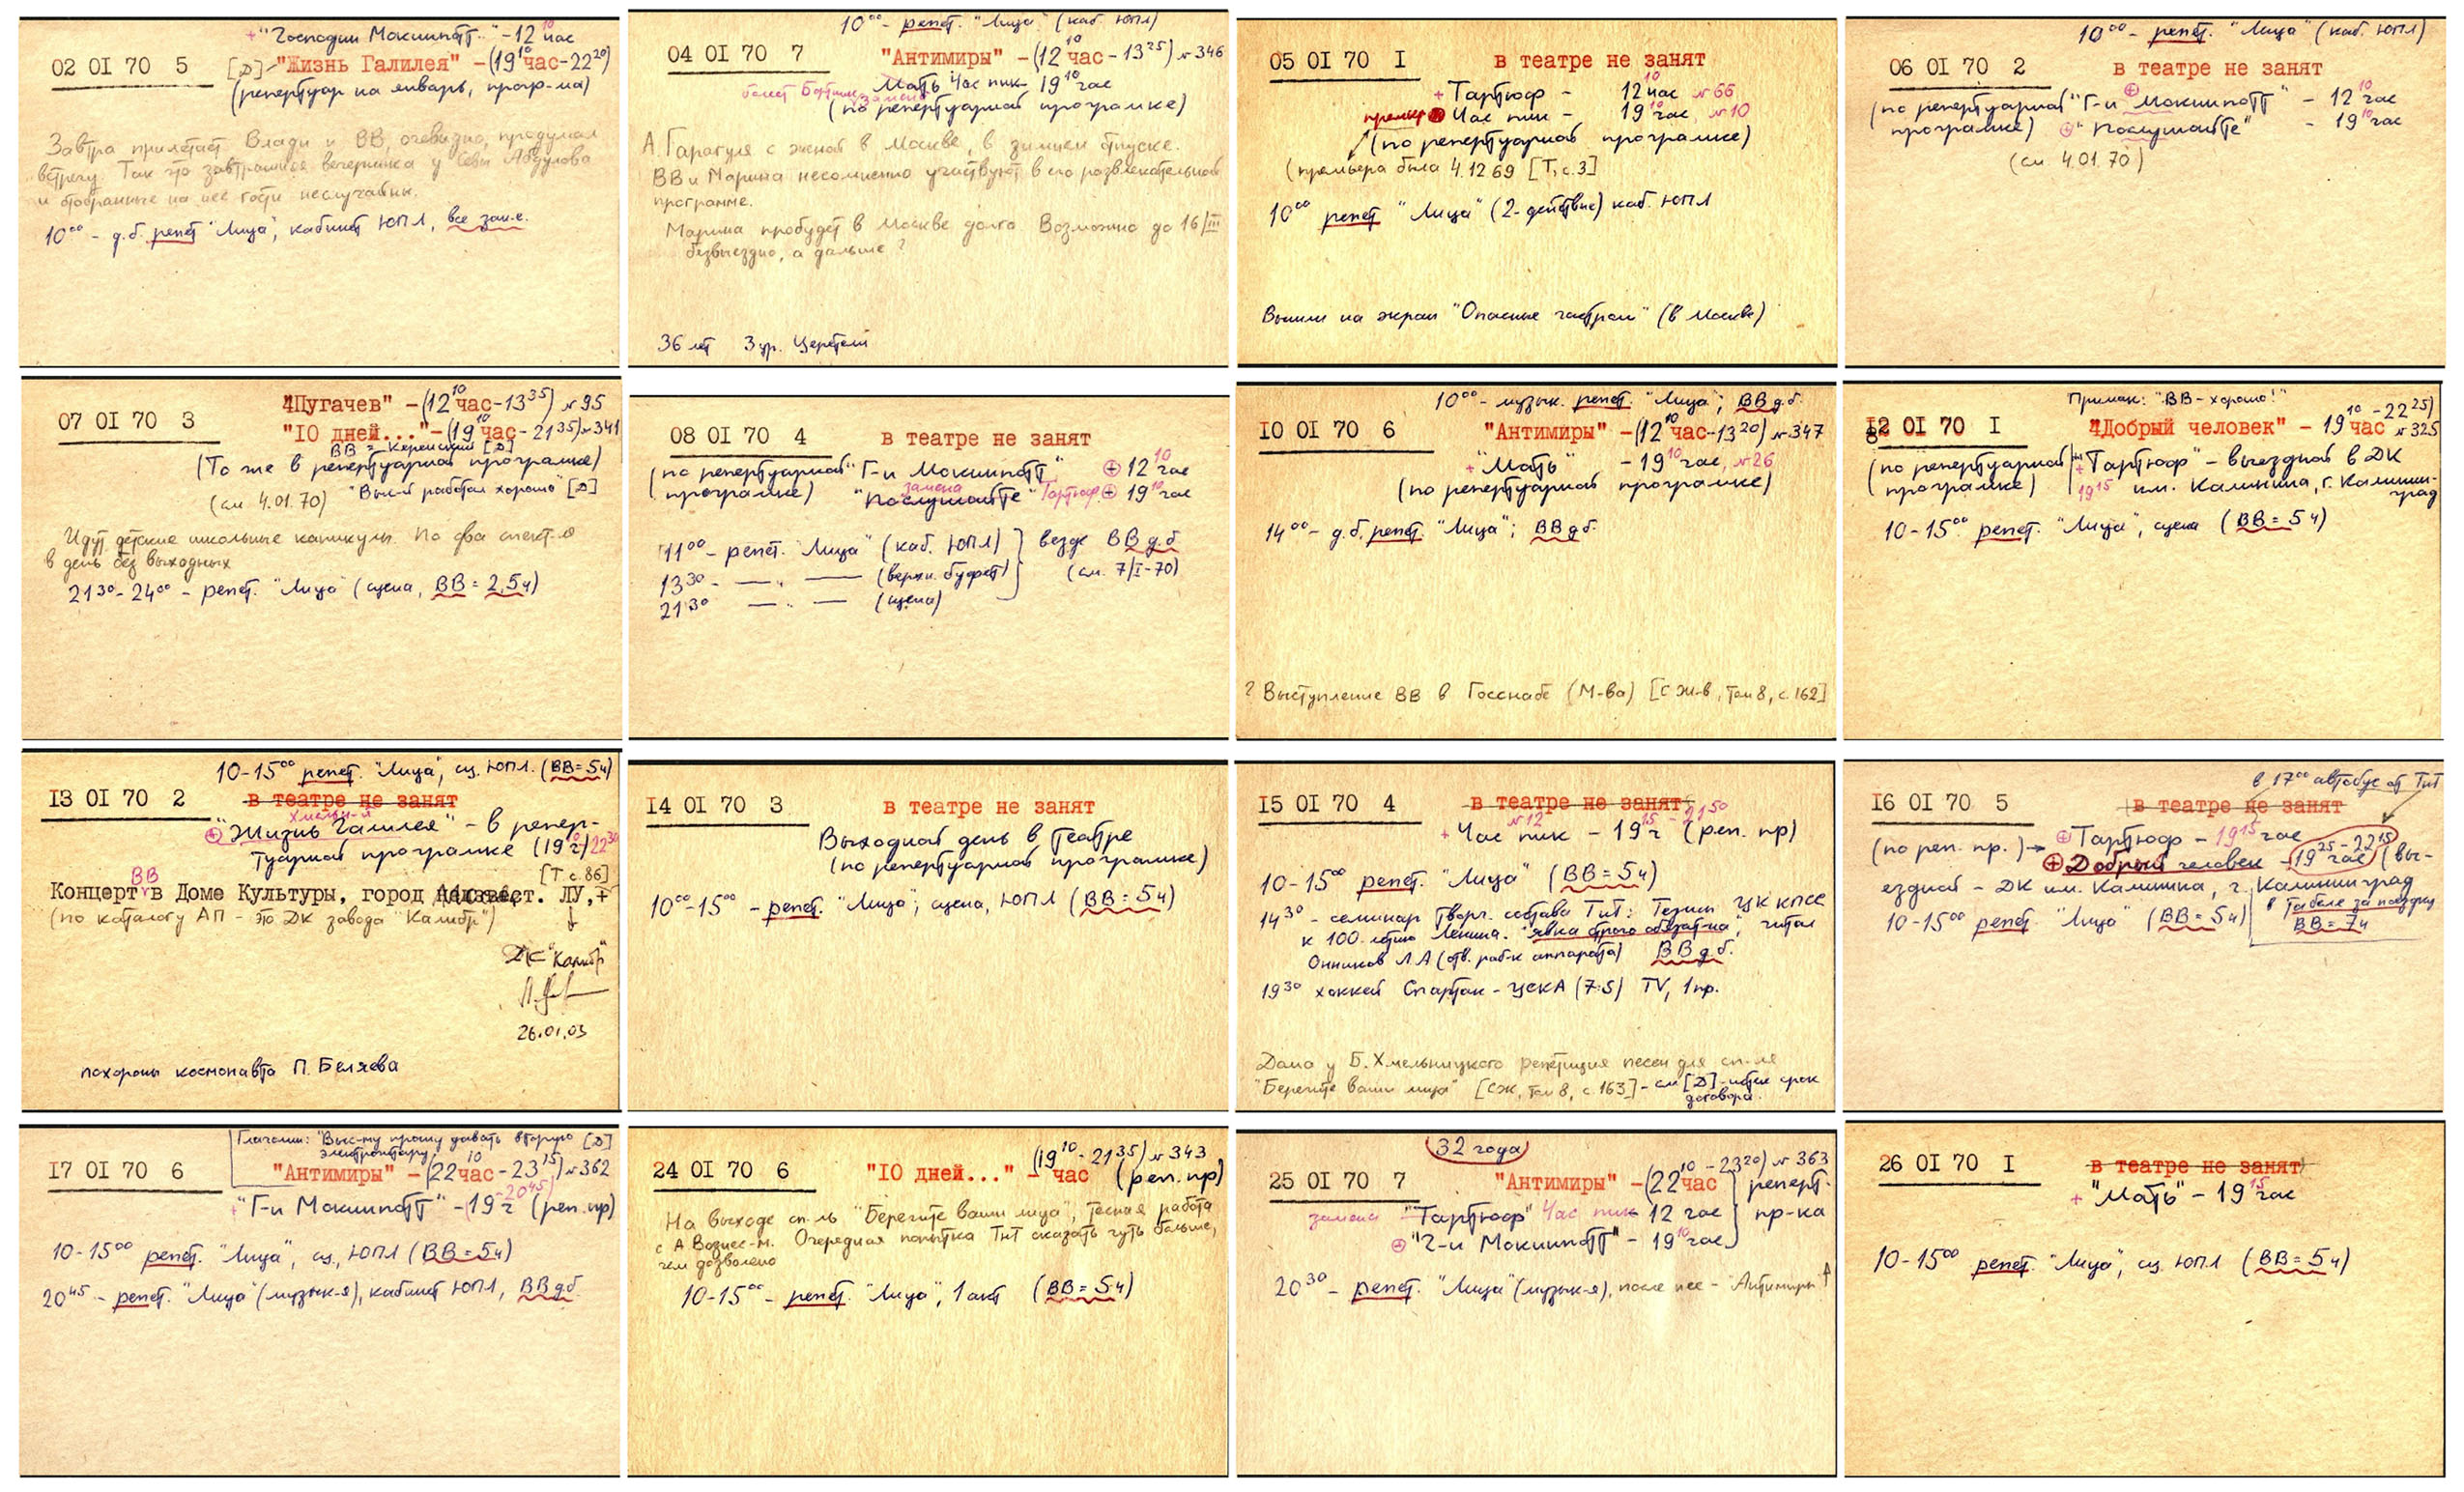 + "Господин Мокинпотт" - 12¹⁰ час
02 0I 70 5 [Д] - "Жизнь Галилея" - (19¹⁰ час - 22²⁰)
(репертуар на январь, прогр-ма)
Завтра прилетает Влади и ВВ, очевидно, продумал
встречу. Так что завтрашняя вечеринка у Севы Абдулова
и отобранные на нее гости неслучайны.
10⁰⁰ - д.б. репет "Лица", кабинет ЮПЛ, все зан-е.
10⁰⁰ - репет. "Лица" (каб. ЮПЛ)
04 0I 70 7 "Антимиры" - (12¹⁰ час - 13²⁵) № 346
Мать Час пик 19¹⁰ час
замена
(по репертуарной програмке)
А. Гарагуля с женой в Москве, в зимнем отпуске.
ВВ и Марина несомненно участвуют в его развлекательной
программе.
Марина пробудет в Москве долго. Возможно до 16/III
безвыездно, а дальше?
36 лет Зур. Церетели
05 0I 70 I в театре не занят
+ Тартюф - 12¹⁰ час № 66
премьер Час пик - 19¹⁰ час, № 10
(по репертуарной програмке)
(премьера была 4.12 69 [Т, с.3]
10⁰⁰ репет "Лица" (2-действие) каб. ЮПЛ
Вышли на экран "Опасные гастроли" (в Москве)
10⁰⁰ - репет. "Лица" (каб. ЮПЛ)
06 0I 70 2 в театре не занят
(по репертуарной програмке) "Г-н Мокинпотт" - 12¹⁰ час
⊕ "Послушайте" - 19¹⁰ час
(см 4.01.70)
"Пугачев" - (12¹⁰ час - 13³⁵) № 95
07 0I 70 3 "I0 дней..." - (19¹⁰ час - 21³⁵) № 341
ВВ = Керенский [Д]
(То же в репертуарной програмке)
(см 4.01.70) "Выс-й работал хорошо" [Д]
Идут детские школьные каникулы. По два спект-я
в день без выходных
21³⁰ - 24⁰⁰ - репет. "Лица" (сцена, ВВ = 2,5ч)
08 0I 70 4 в театре не занят
(по репертуарной програмке) "Г-н Мокинпотт" ⊕ 12¹⁰ час
замена
"Послушайте" Тартюф ⊕ 19¹⁰ час
11⁰⁰ - репет. "Лица" (каб. ЮПЛ) } везде ВВ д.б.
13³⁰ - —„— (верхн. буфет) (см. 7/I-70)
21³⁰ —„— (сцена)
10⁰⁰ - музык. репет. "Лица"; ВВ д.б.
I0 0I 70 6 "Антимиры" - (12¹⁰ час - 13²⁰) № 347
+ "Мать" - 19¹⁰ час, № 26
(по репертуарной програмке)
14⁰⁰ - д.б. репет. "Лица"; ВВ д.б.
? Выступление ВВ в Госснабе (М-ва) [СЖ-В, том 8, с.162]
Примак: "ВВ - хорошо!"
I2 0I 70 I "Добрый человек" - 19¹⁰ час - 22²⁵) № 325
(по репертуарной програмке) + "Тартюф" - выездной в ДК
19¹⁵ им. Калинина, г. Калининград
10-15⁰⁰ репет. "Лица", сцена (ВВ = 5ч)
10-15⁰⁰ репет. "Лица", сц. ЮПЛ. (ВВ = 5ч)
I3 0I 70 2 в театре не занят
Хмельн-й
⊕ "Жизнь Галилея" - в репер-
туарной програмке (19 ч) 22³⁰
[Т с.86]
ВВ
Концерт в Доме Культуры, город неизвест. ЛУ,+
(по каталогу АП - это ДК завода "Калибр")
ДК "Калибр"
26.01.03
похороны космонавта П. Беляева
I4 0I 70 3 в театре не занят
Выходной день в Театре
(по репертуарной програмке)
10⁰⁰-15⁰⁰ - репет. "Лица", сцена, ЮПЛ (ВВ = 5ч)
I5 0I 70 4 в театре не занят
№ 12
+ Час пик - 19¹⁵ ч - 21⁵⁰ (реп. пр)
10-15⁰⁰ репет. "Лица" (ВВ = 5ч)
14³⁰ - семинар творч. состава ТнТ: Тезисы ЦК КПСС
к 100-летию Ленина. "явка строго обязат-на", читал
Онников Л А (отв. раб-к аппарата) ВВ д.б.
19³⁰ хоккей Спартак - ЦСКА (7:5) TV, 1пр.
Дома у Б. Хмельницкого репетиция песен для сп-ля
"Берегите ваши лица" [СЖ, том 8, с.163] - см [Д] - истек срок
договора.
в 17⁰⁰ автобус от ТнТ
I6 0I 70 5 в театре не занят
(по реп. пр.) → ⊕ Тартюф - 19¹⁵ час
⊕ Добрый человек - 19²⁵ час - 22¹⁵ (вы-
ездной - ДК им. Калинина, г. Калининград
10-15⁰⁰ репет "Лица" (ВВ = 5ч) в табеле за поездку
ВВ = 7ч
Глаголин: "Выс-му прошу давать вторую [Д]
электрогитару"
I7 0I 70 6 "Антимиры" - (22¹⁰ час - 23¹⁵) № 362
+ "Г-н Мокинпотт" - (19 ч - 20⁴⁵) (реп. пр)
10-15⁰⁰ репет. "Лица", сц., ЮПЛ (ВВ = 5ч)
20⁴⁵ - репет. "Лица" (музык-я), кабинет ЮПЛ, ВВ д.б.
24 0I 70 6 "I0 дней..." - (19¹⁰ час - 21³⁵) № 343
(реп. пр)
На выходе сп-ль "Берегите ваши лица", тесная работа
с А Вознес-м. Очередная попытка ТнТ сказать чуть больше,
чем дозволено
10-15⁰⁰ - репет. "Лица", 1 акт (ВВ = 5ч)
(32 года)
25 0I 70 7 "Антимиры" - (22¹⁰ час - 23²⁰) № 363
замена "Тартюф" Час пик 12 час } реперт.
⊕ "Г-н Мокинпотт" - 19¹⁰ час пр-ка
20³⁰ - репет. "Лица" (музык-я), после нее - "Антимиры" ↑
26 0I 70 I в театре не занят
+ "Мать" - 19¹⁵ час
10-15⁰⁰ репет. "Лица", сц. ЮПЛ (ВВ = 5ч)